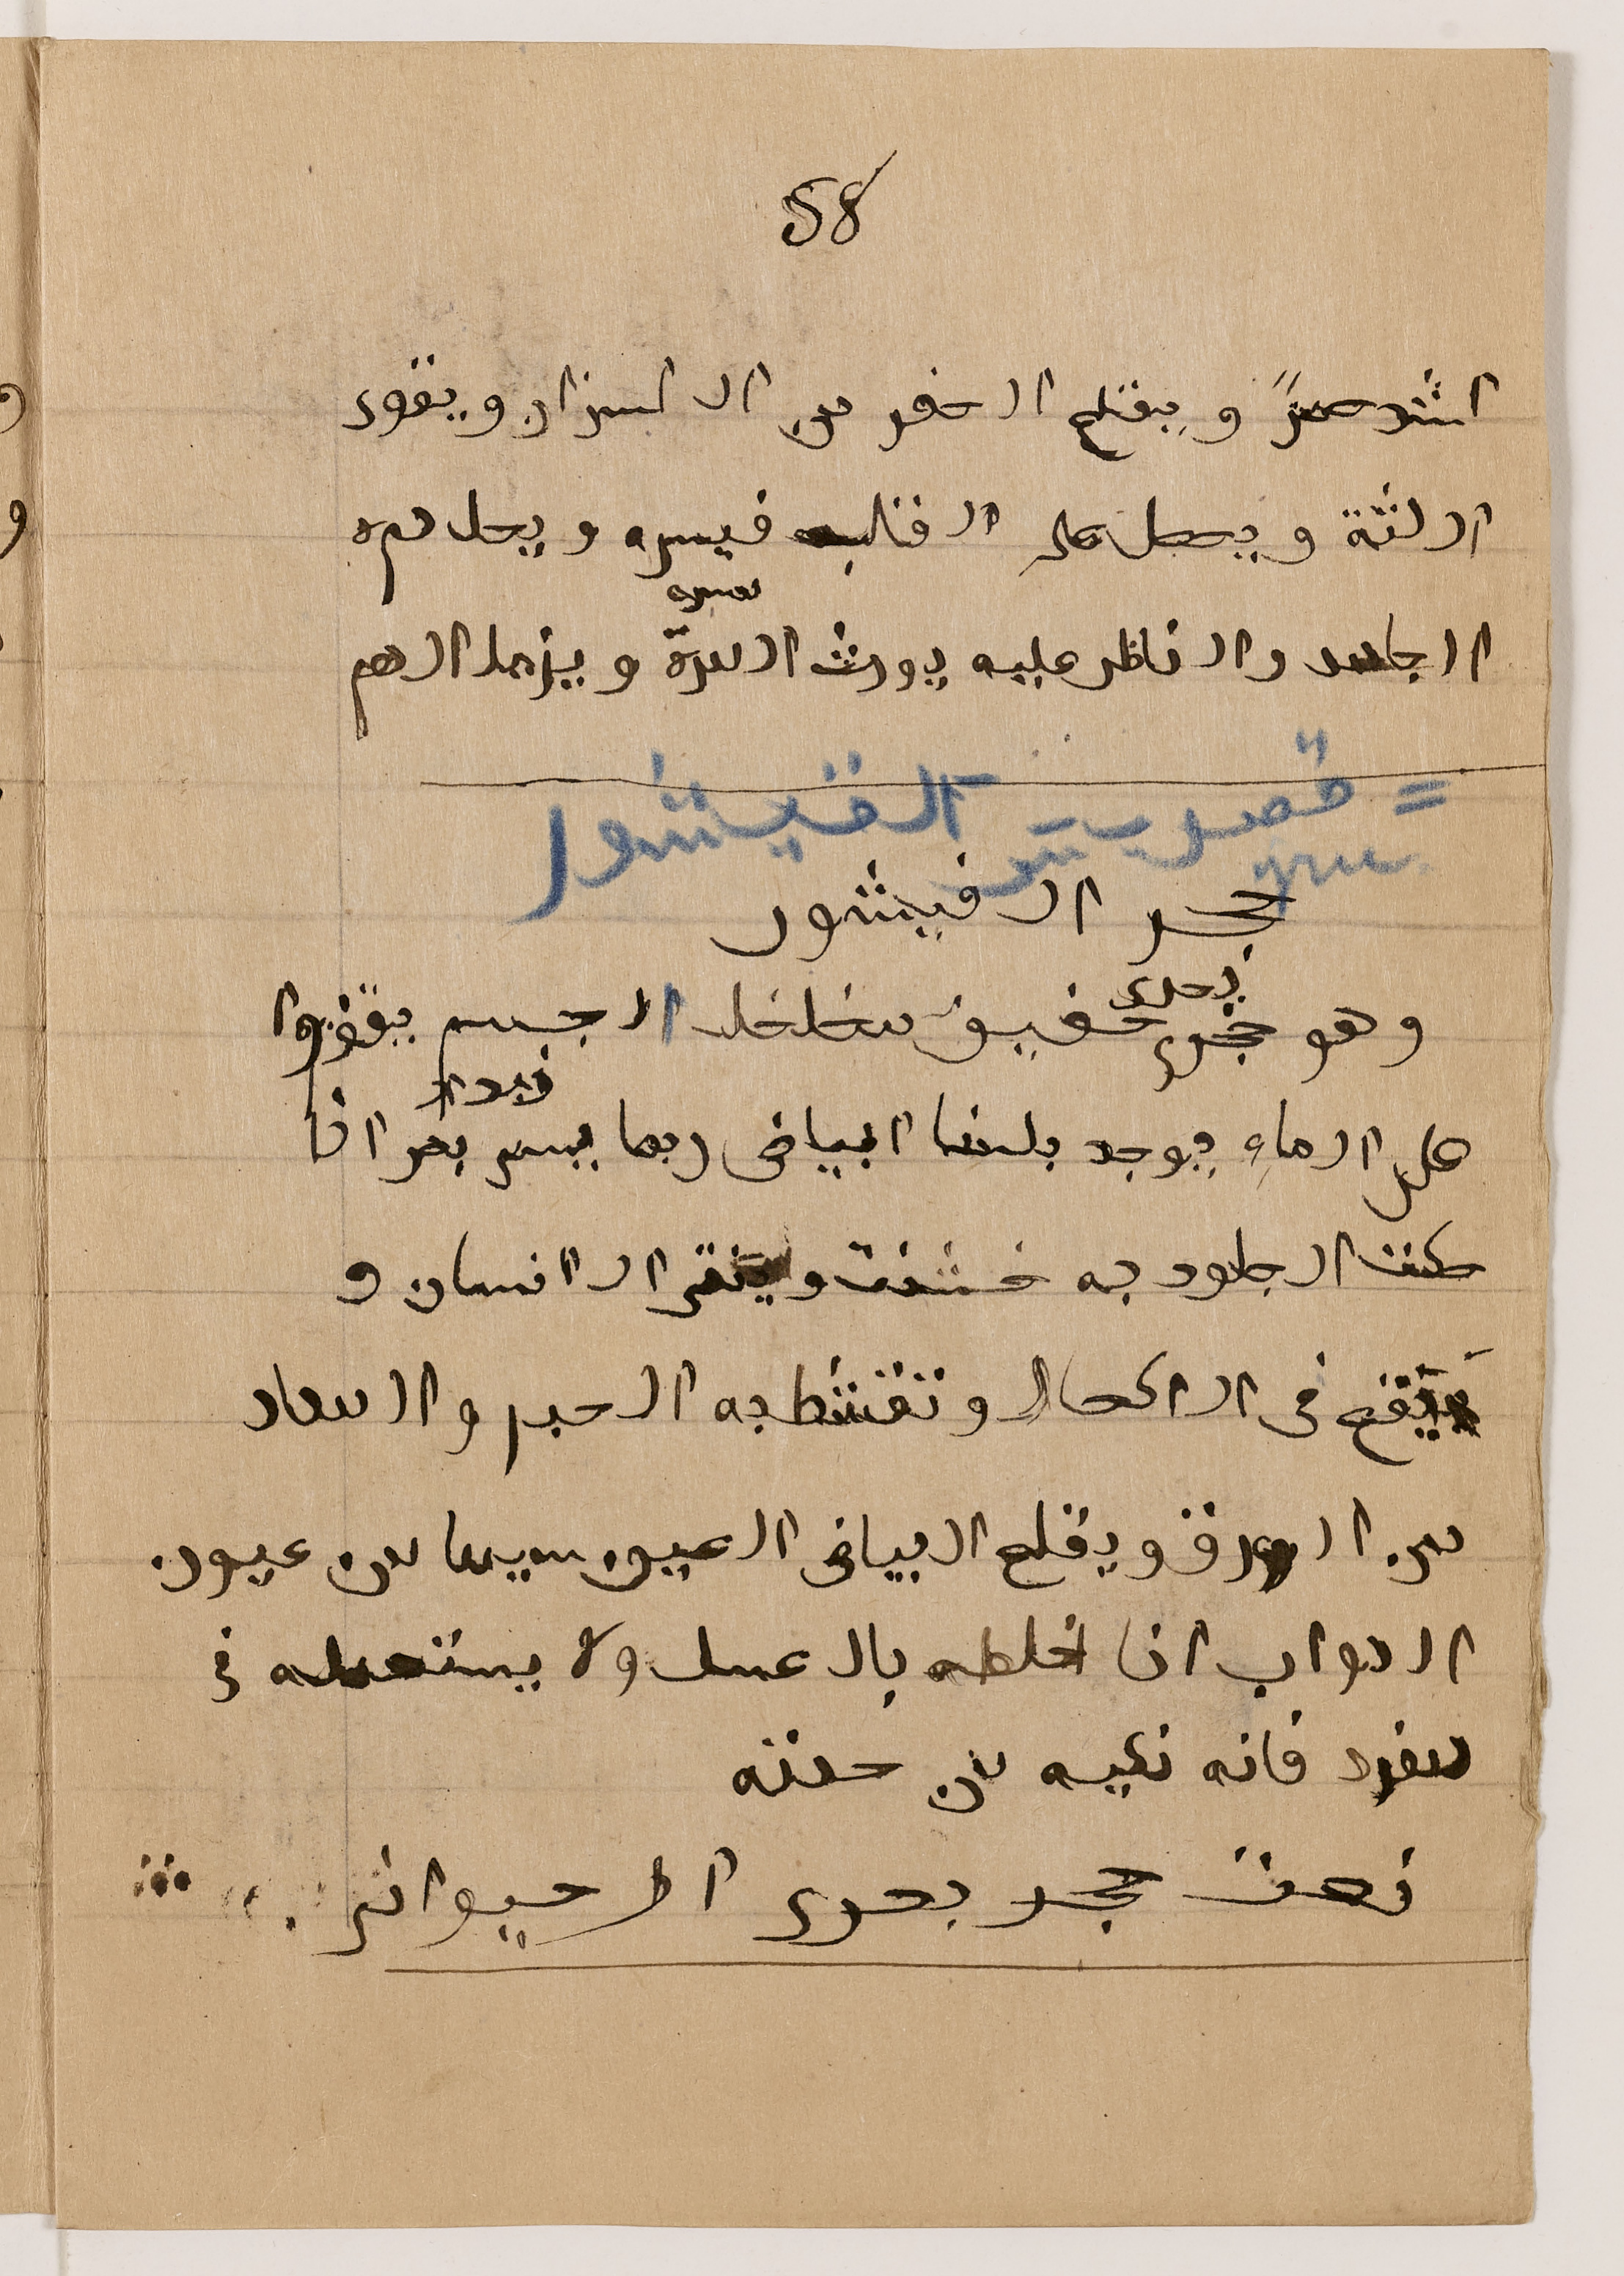 58
اشد صبرً ويقلع الحفر من الاسنان ويقوى
اللثة ويحمل على القلب فيسره ويحل دمه
الجامد والناظر عليه يورث المسرة ويزيل الهم
مسره
= قصريت الفيشور
حجر الفيشور
بحرى
وهو حجرى خفيف متخلخل الجسم يقفوا
على الماء يوجد بلسا ابياض ربما يسمى بحر اذا
زبد
حكت الجلود به خشنت وينقى الاسنان و
ينفع فى الاكحال وتقشط به الحبر والمداد
من الورق ويقلع البياض العين سيما من عيون
الدواب اذا اخلطه بالعسل ولا يستعمله فى
مفرد فانه نكيه من حدته
نعت حجر بحرى الحيوانى